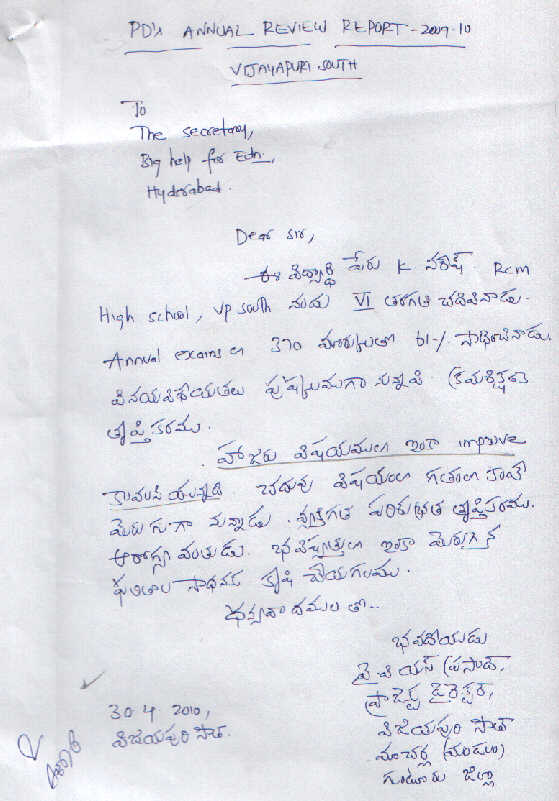 PD's ANNUAL REVIEW REPORT - 2009-10
VIJAYAPURI SOUTH
To
The secretary,
Big help for Edn.,
Hyderabad.
Dear sir,
ఈ విద్యార్థి పేరు K నరేష్ Rcm
High school, VP south నందు VI తరగతి చదివినాడు.
Annual exams లో 370 మార్కులతో 61-/. సాధించినాడు.
వినయవిధేయతలు పుష్కలముగా నున్నవి. క్రమశిక్షణ
తృప్తికరము.
హాజరు విషయములో ఇంకా improve
కావలసియున్నది. చదువు విషయంలో గతంలో కంటే
మెరుగుగా నున్నాడు. వ్యక్తిగత పరిశుభ్రత తృప్తికరము.
ఆరోగ్య వంతుడు. భవిష్యత్తులో ఇంకా మెరుగైన
ఫలితాల సాధనకు కృషి చేయగలము.
ధన్యవాదములతో..
భవదీయుడు
వై వి యస్ ప్రసాద్,
ప్రాజెక్టు డైరెక్టర్,
విజయపురి సౌత్
మాచర్ల (మండలం)
గుంటూరు జిల్లా
30 4 2010,
విజయపురి సౌత్.